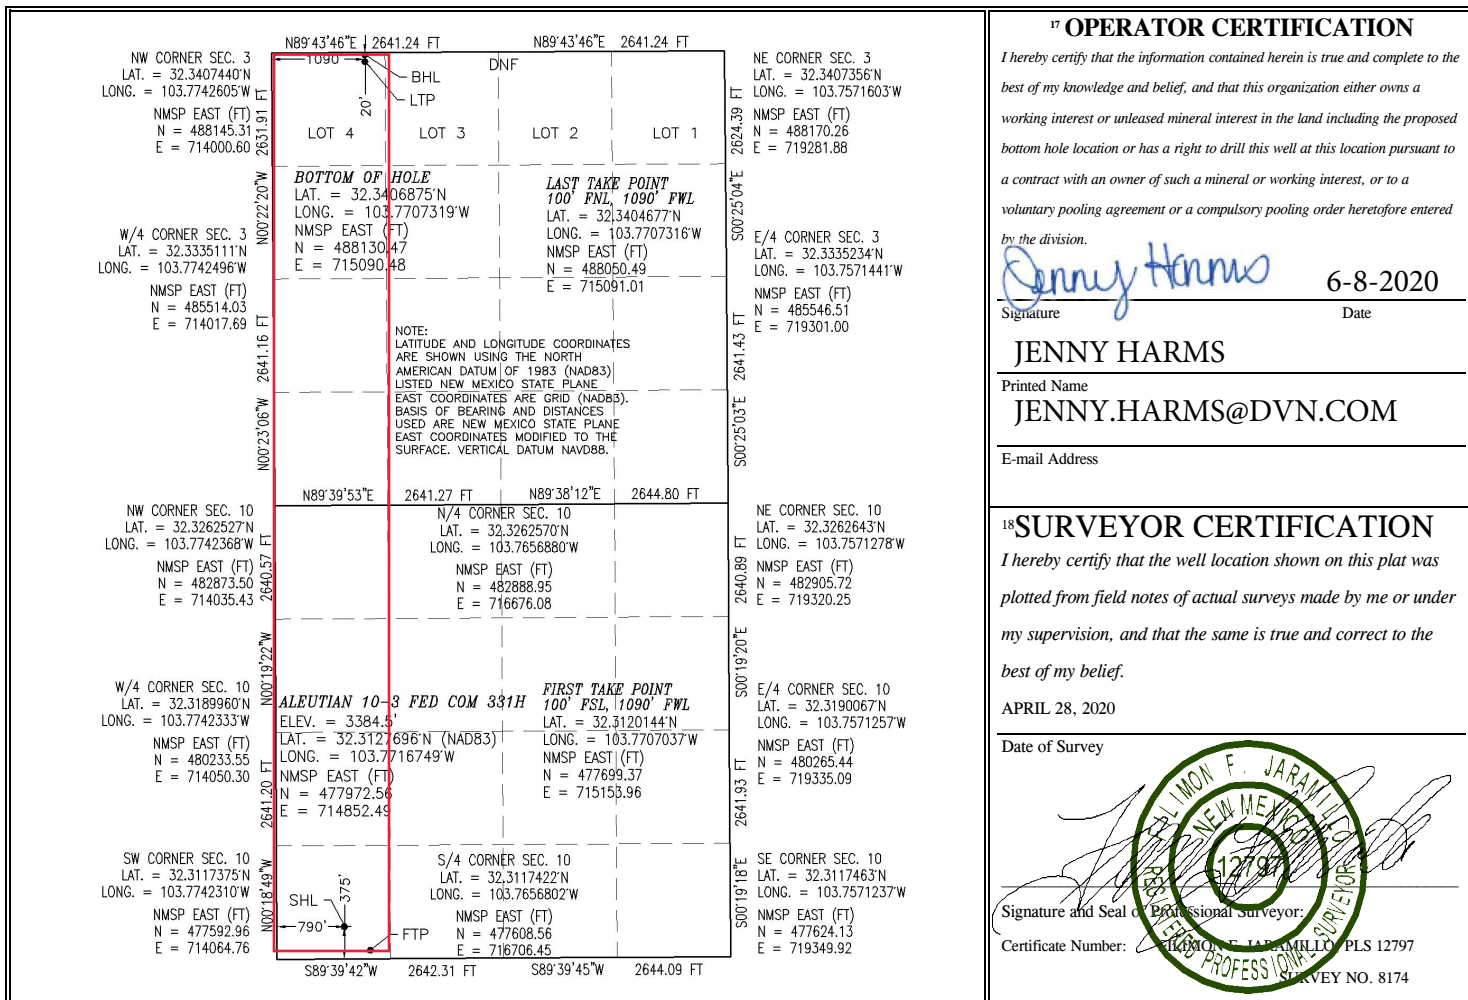 N89°43'46"E 2641.24 FT
N89°43'46"E 2641.24 FT
NW CORNER SEC. 3
LAT. = 32.3407440°N
LONG. = 103.7742605°W
NMSP EAST (FT)
N = 488145.31
E = 714000.60
1090'
DNF
BHL
LTP
20'
LOT 4
LOT 3
LOT 2
LOT 1
NE CORNER SEC. 3
LAT. = 32.3407356°N
LONG. = 103.7571603°W
NMSP EAST (FT)
N = 488170.26
E = 719281.88
N00°22'20"W 2631.91 FT
S00°25'04"E 2624.39 FT
BOTTOM OF HOLE
LAT. = 32.3406875°N
LONG. = 103.7707319°W
NMSP EAST (FT)
N = 488130.47
E = 715090.48
LAST TAKE POINT
100' FNL, 1090' FWL
LAT. = 32.3404677°N
LONG. = 103.7707316°W
NMSP EAST (FT)
N = 488050.49
E = 715091.01
W/4 CORNER SEC. 3
LAT. = 32.3335111°N
LONG. = 103.7742496°W
NMSP EAST (FT)
N = 485514.03
E = 714017.69
E/4 CORNER SEC. 3
LAT. = 32.3335234°N
LONG. = 103.7571441°W
NMSP EAST (FT)
N = 485546.51
E = 719301.00
NOTE:
LATITUDE AND LONGITUDE COORDINATES
ARE SHOWN USING THE NORTH
AMERICAN DATUM OF 1983 (NAD83)
LISTED NEW MEXICO STATE PLANE
EAST COORDINATES ARE GRID (NAD83).
BASIS OF BEARING AND DISTANCES
USED ARE NEW MEXICO STATE PLANE
EAST COORDINATES MODIFIED TO THE
SURFACE. VERTICAL DATUM NAVD88.
N00°23'06"W 2641.16 FT
S00°25'03"E 2641.43 FT
N89°39'53"E 2641.27 FT
N89°38'12"E 2644.80 FT
NW CORNER SEC. 10
LAT. = 32.3262527°N
LONG. = 103.7742368°W
NMSP EAST (FT)
N = 482873.50
E = 714035.43
N/4 CORNER SEC. 10
LAT. = 32.3262570°N
LONG. = 103.7656880°W
NMSP EAST (FT)
N = 482888.95
E = 716676.08
NE CORNER SEC. 10
LAT. = 32.3262643°N
LONG. = 103.7571278°W
NMSP EAST (FT)
N = 482905.72
E = 719320.25
N00°19'22"W 2640.57 FT
S00°19'20"E 2640.89 FT
W/4 CORNER SEC. 10
LAT. = 32.3189960°N
LONG. = 103.7742333°W
NMSP EAST (FT)
N = 480233.55
E = 714050.30
ALEUTIAN 10-3 FED COM 331H
ELEV. = 3384.5'
LAT. = 32.3127696°N (NAD83)
LONG. = 103.7716749°W
NMSP EAST (FT)
N = 477972.56
E = 714852.49
FIRST TAKE POINT
100' FSL, 1090' FWL
LAT. = 32.3120144°N
LONG. = 103.7707037°W
NMSP EAST (FT)
N = 477699.37
E = 715153.96
E/4 CORNER SEC. 10
LAT. = 32.3190067°N
LONG. = 103.7571257°W
NMSP EAST (FT)
N = 480265.44
E = 719335.09
N00°18'49"W 2641.20 FT
S00°19'18"E 2641.93 FT
SW CORNER SEC. 10
LAT. = 32.3117375°N
LONG. = 103.7742310°W
NMSP EAST (FT)
N = 477592.96
E = 714064.76
SHL
375'
790'
FTP
S/4 CORNER SEC. 10
LAT. = 32.3117422°N
LONG. = 103.7656802°W
NMSP EAST (FT)
N = 477608.56
E = 716706.45
SE CORNER SEC. 10
LAT. = 32.3117463°N
LONG. = 103.7571237°W
NMSP EAST (FT)
N = 477624.13
E = 719349.92
S89°39'42"W 2642.31 FT
S89°39'45"W 2644.09 FT
17 OPERATOR CERTIFICATION
I hereby certify that the information contained herein is true and complete to the
best of my knowledge and belief, and that this organization either owns a
working interest or unleased mineral interest in the land including the proposed
bottom hole location or has a right to drill this well at this location pursuant to
a contract with an owner of such a mineral or working interest, or to a
voluntary pooling agreement or a compulsory pooling order heretofore entered
by the division.
Jenny Harms 6-8-2020
Signature Date
JENNY HARMS
Printed Name
JENNY.HARMS@DVN.COM
E-mail Address
18 SURVEYOR CERTIFICATION
I hereby certify that the well location shown on this plat was
plotted from field notes of actual surveys made by me or under
my supervision, and that the same is true and correct to the
best of my belief.
APRIL 28, 2020
Date of Survey
FILIMON F. JARAMILLO
NEW MEXICO
12797
REGISTERED PROFESSIONAL SURVEYOR
Signature and Seal of Professional Surveyor:
Certificate Number: FILIMON F. JARAMILLO, PLS 12797
SURVEY NO. 8174